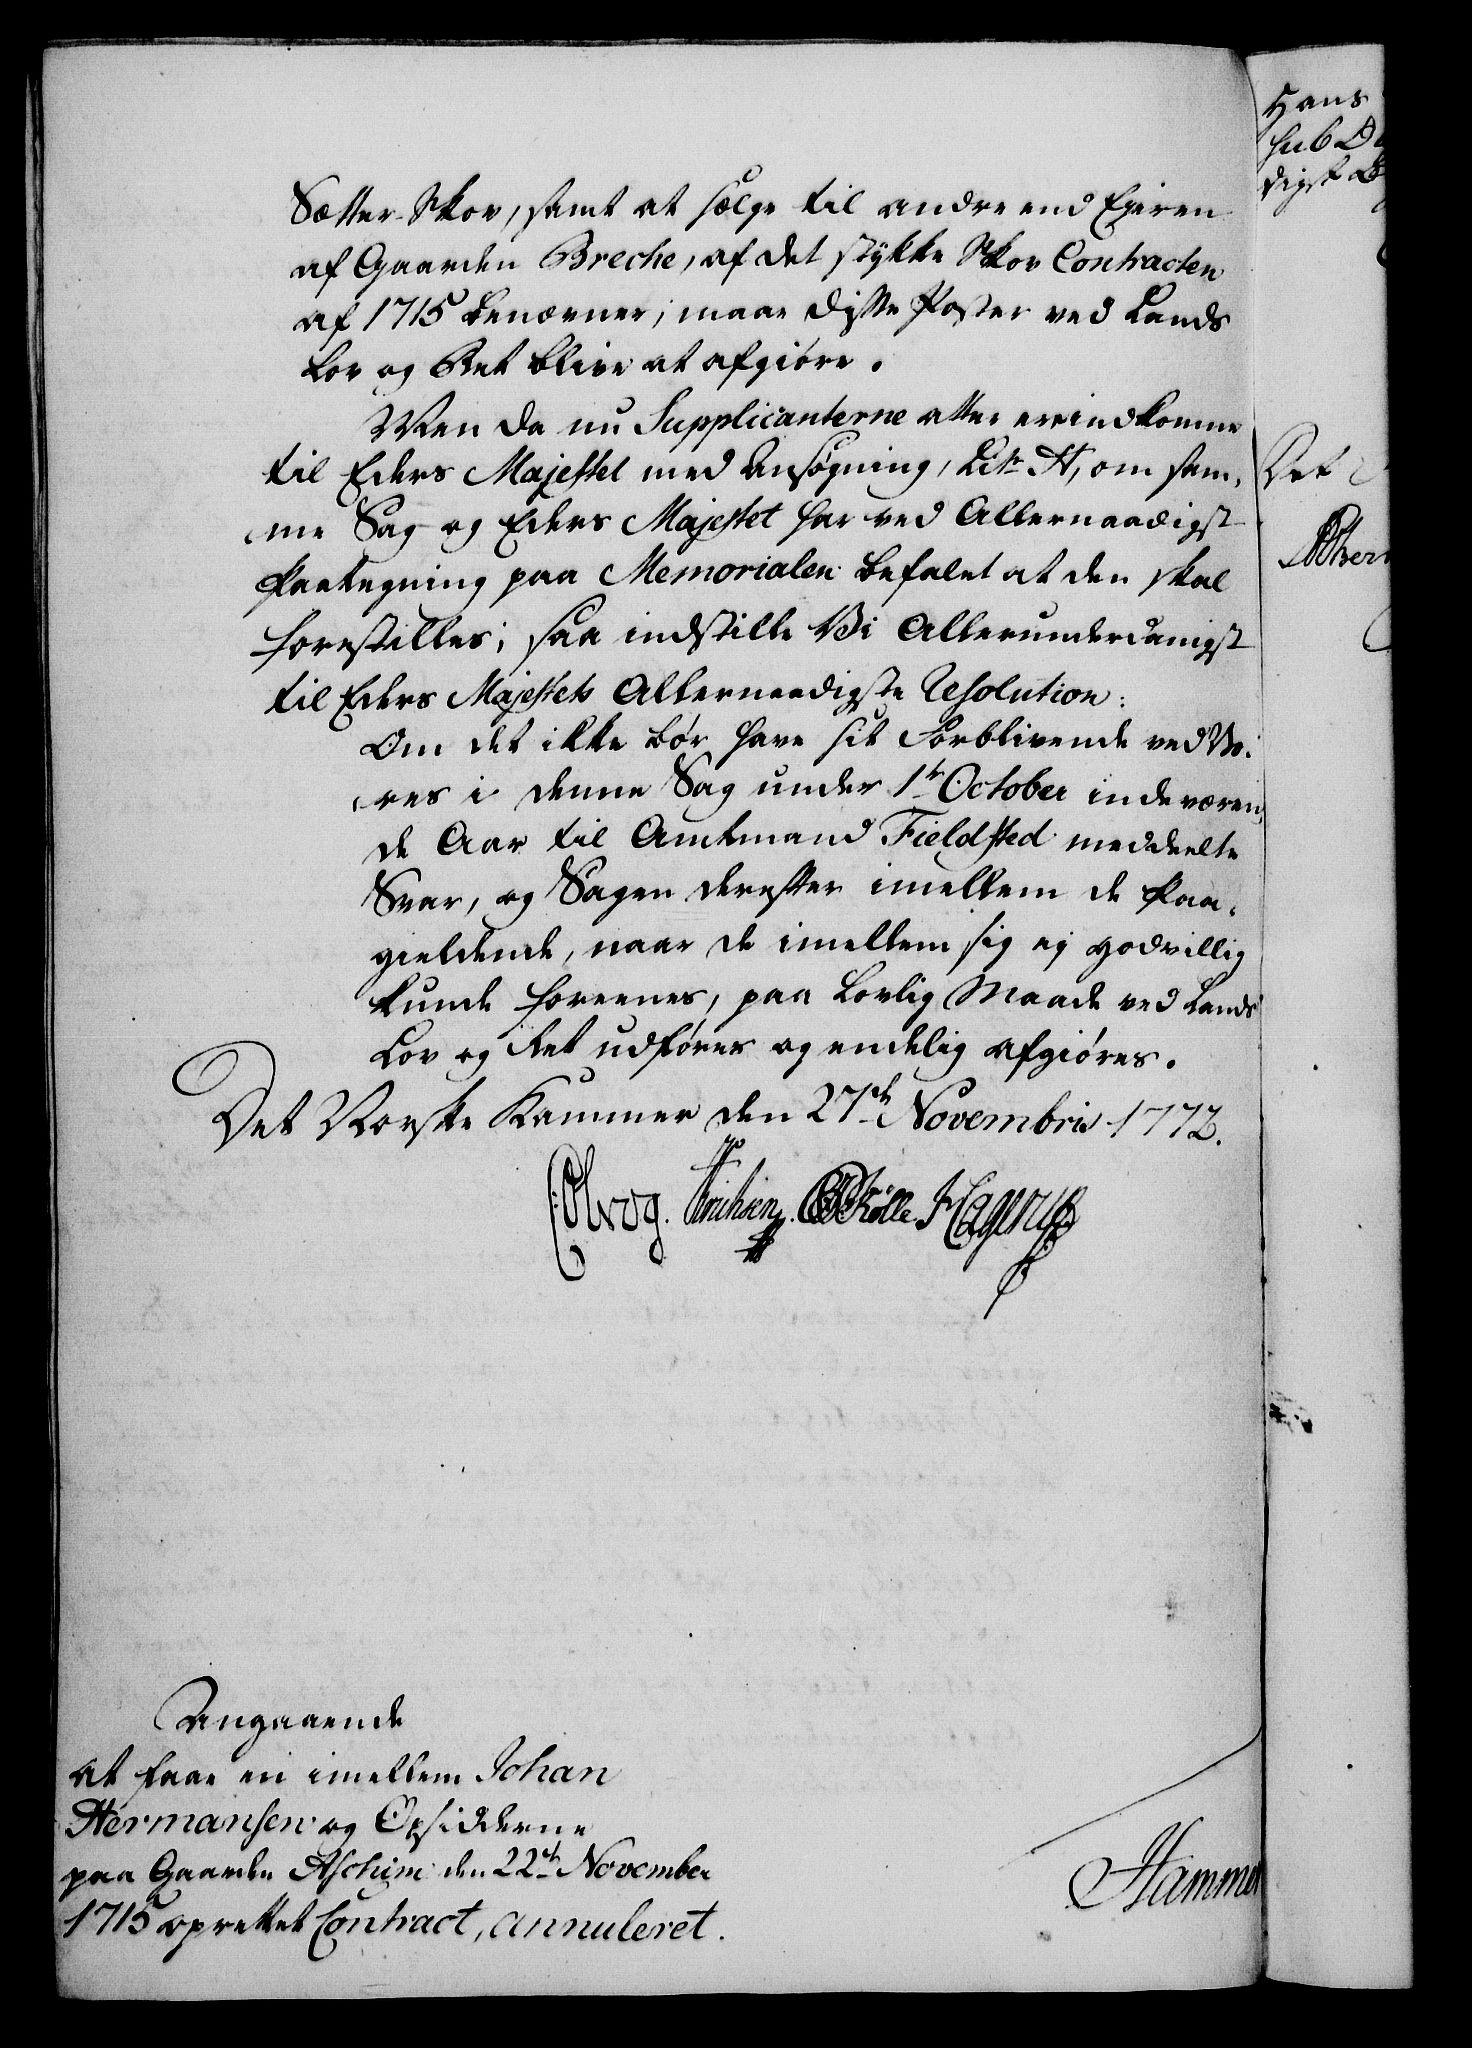 Sætter Skov, samt at sælge til andre end Eieren
af Gaarden Breche, af det stykke Skov Contracten
af 1715 benævner; maae disse Poster ved Lands
Lov og Ret blive at afgiøre.
Men da nu Supplicanterne atter ere indkomne
til Eders Majestet med Ansøgning, Litr. H, om sam-
me Sag og Eders Majestet har ved Allernaadigst
Paategning paa Memorialen befalet at den skal
forestilles; saa indstille Vi Allerunderdanigst
til Eders Majestets Allernaadigste Resolution:
Om det ikke bør have sit Forblivende ved Vo-
res i denne Sag under 1te October indeværen-
de Aar til Amtmand Fieldsted meddeelte
Svar, og Sagen derefter imellem de Paa-
gieldende, naar de imellem sig ej godvillig
kunde foreenes, paa Lovlig Maade ved Lands
Lov og Ret udføres og endelig afgiøres.
Det Norske Kammer den 27de Novembris 1772.
Erichsen. Hagerup
Angaaende
at faae en imellem Johan
Hermansen og Opsidderne
paa Gaarden Aschim den 22de November
1715 oprettet Contract, annuleret.
Hammer
Hans
sub
digst
Det